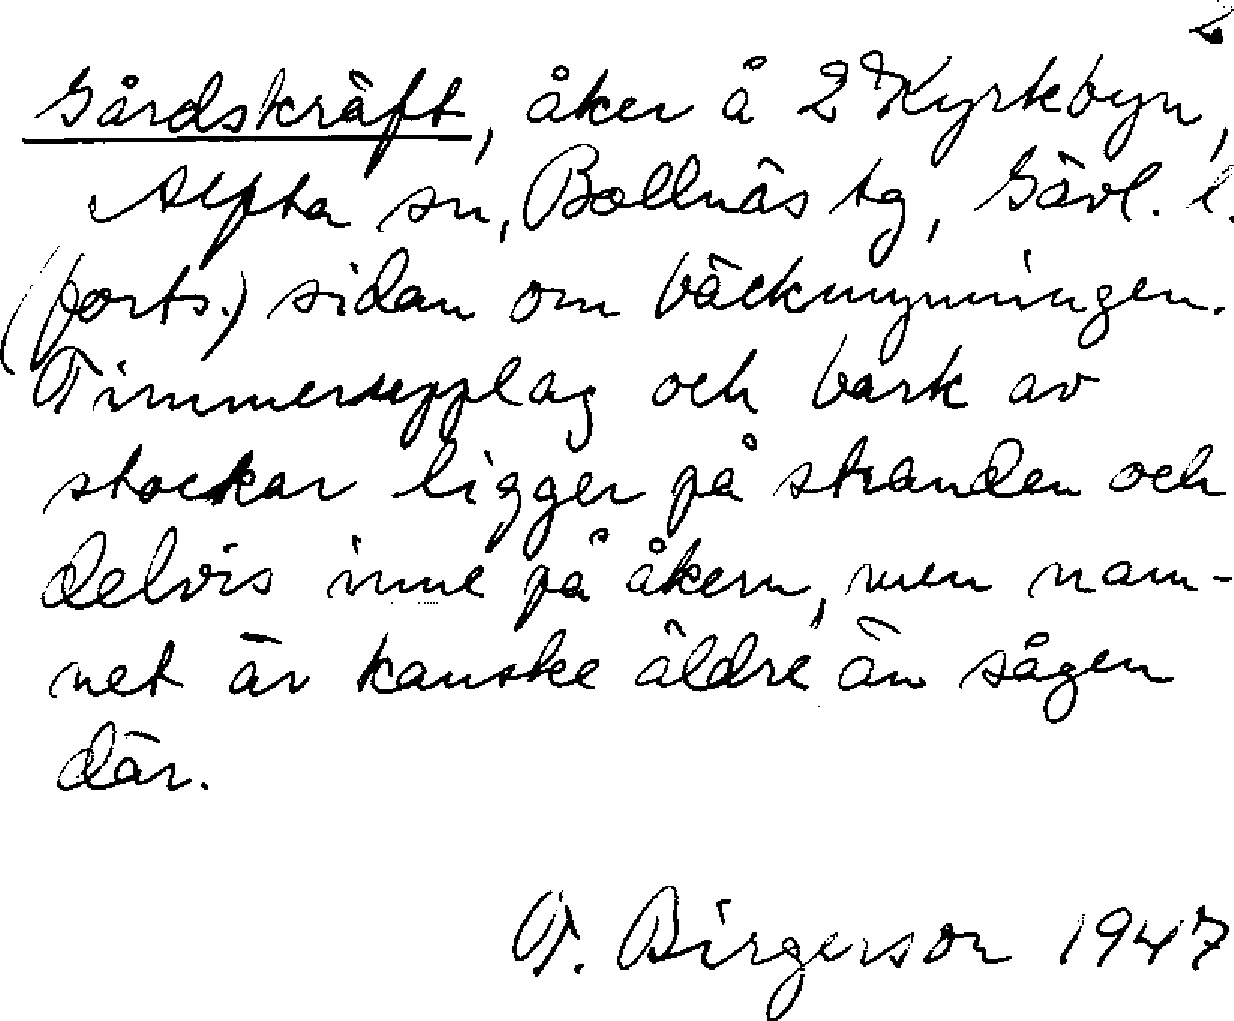 2
Gårdskräft, åker å 2 Kyrkbyn,
Alfta sn, Bollnäs tg, Gävl. l.
(forts.) sidan om bäckmynningen.
Timmerupplag och bark av
stockar ligger på stranden och
delvis inne på åkern, men nam-
net är kanske äldre än sågen
där.
T. Birgerson 1947